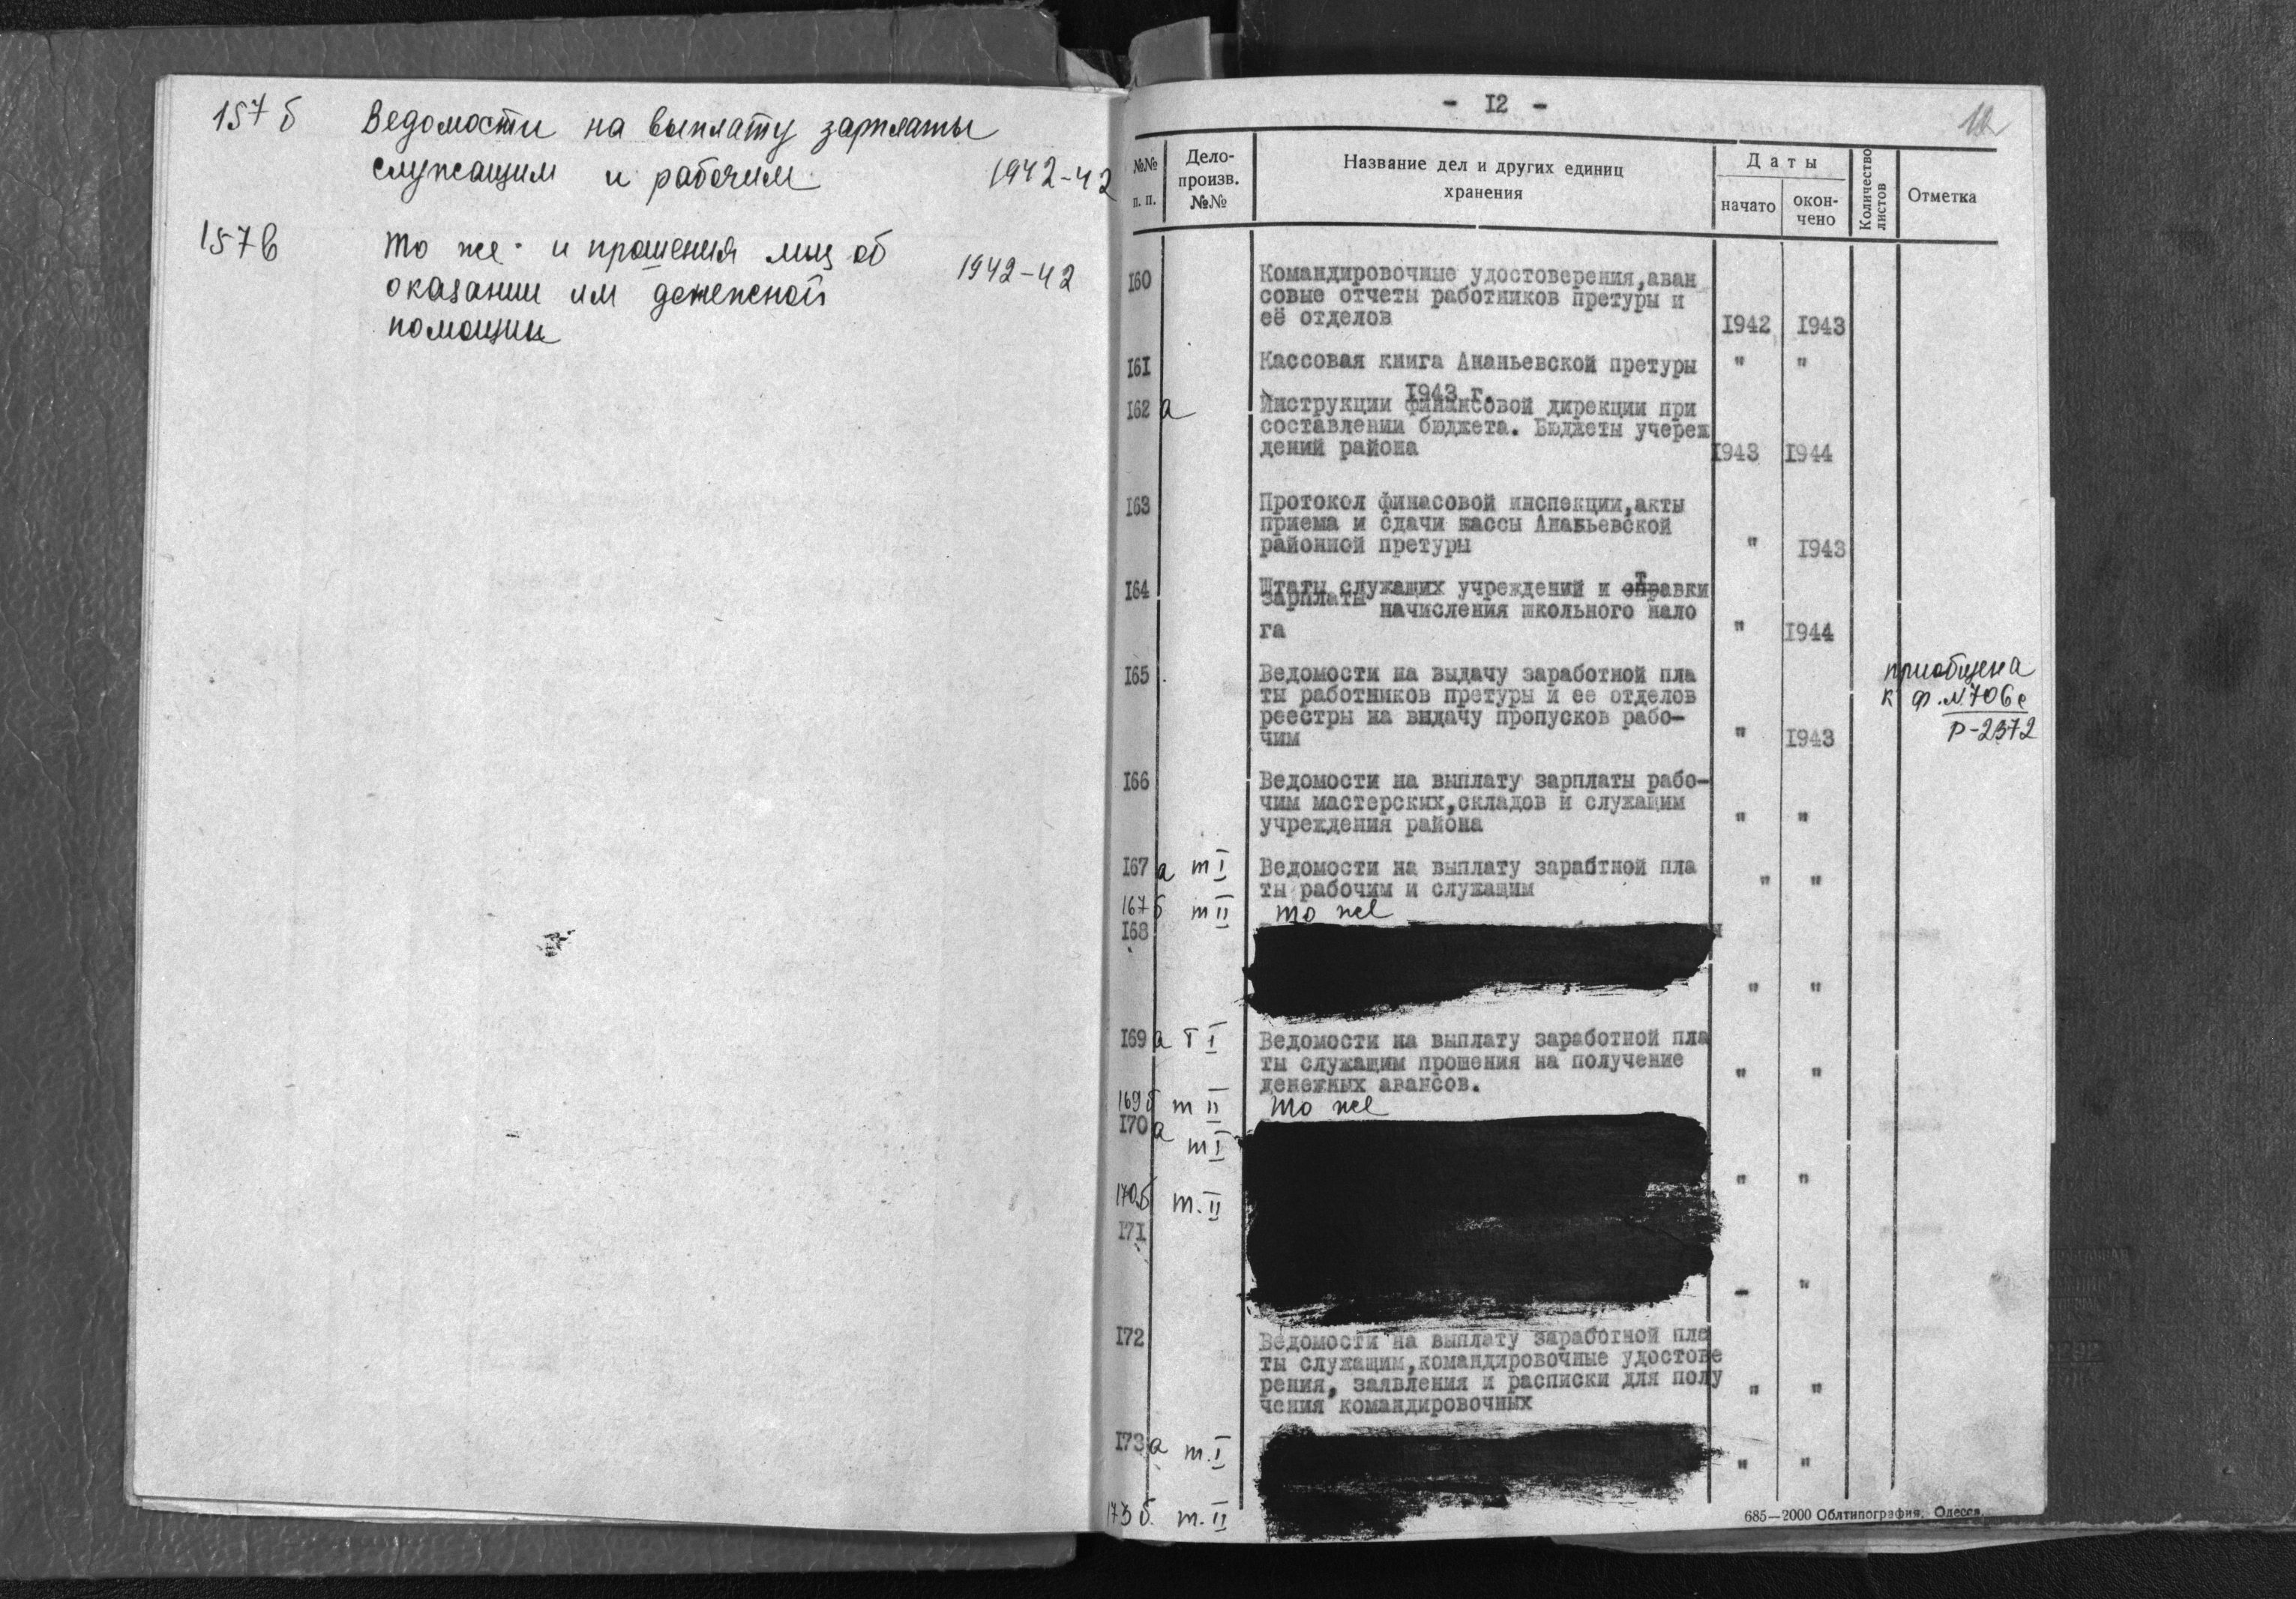 157 б Ведомости на выплату зарплаты
служащим и рабочим 1942-42
157 в то же и прошения лиц об
оказании им денежной 1942-42
помощи
- 12 -
12
№№ п. п.
Дело-
произв.
№№
Название дел и других единиц
хранения
Даты
начато
окон-
чено
Количество
листов
Отметка
160 Командировочные удостоверения,аван
совые отчеты работников претуры и
её отделов 1942 1943
161 Кассовая книга Ананьевской претуры " "
1943 г.
162 а Инструкции финансовой дирекции при
составлении бюджета. Бюджеты учереж
дений района 1943 1944
163 Протокол финасовой инспекции,акты
приема и сдачи кассы Ананьевской
районной претуры " 1943
164 Штаты служащих учреждений и ставки
зарплаты начисления школьного нало
га " 1944
165 Ведомости на выдачу заработной пла
ты работников претуры и ее отделов
реестры на выдачу пропусков рабо-
чим " 1943
приобщена
к ф. №706с
Р-2372
166 Ведомости на выплату зарплаты рабо-
чим мастерских,складов и служащим
учреждения района " "
167 а т I Ведомости на выплату зарабтной пла
ты рабочим и служащим " "
167 б т II то же
168 " "
169 а т I Ведомости на выплату заработной пла
ты служащим прошения на получение
денежных авансов. " "
169 б т II то же
170 а т I " "
170 б т. II
171 - "
172 Ведомости на выплату заработной пла
ты служащим,командировочные удостове
рения, заявления и расписки для полу
чения командировочных " "
173 а т. I " "
173 б. т. II
685—2000 Облтипография, Одесса.